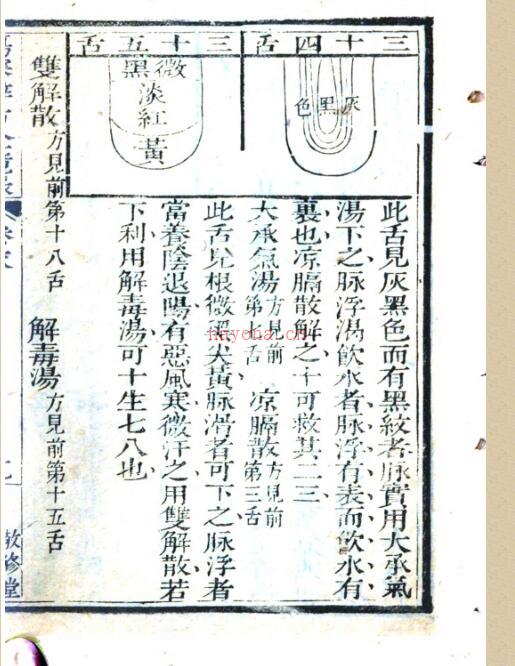 三十四舌
灰黑色
此舌見灰黑色而有黑紋者脉實用大承氣
湯下之脉浮渴飲水者脉浮有表而飲水有
裏也凉膈散解之十可救其二三
大承氣湯方見前第七舌 凉膈散方見前第三舌
三十五舌
微黑
淡紅
黃
此舌見根微黑尖黃脉滑者可下之脉浮者
當養陰退陽有惡風寒微汗之用雙解散若
下利用解毒湯可十生七八也
雙解散方見前第十八舌 解毒湯方見前第十五舌
敬修堂
nayona.cn